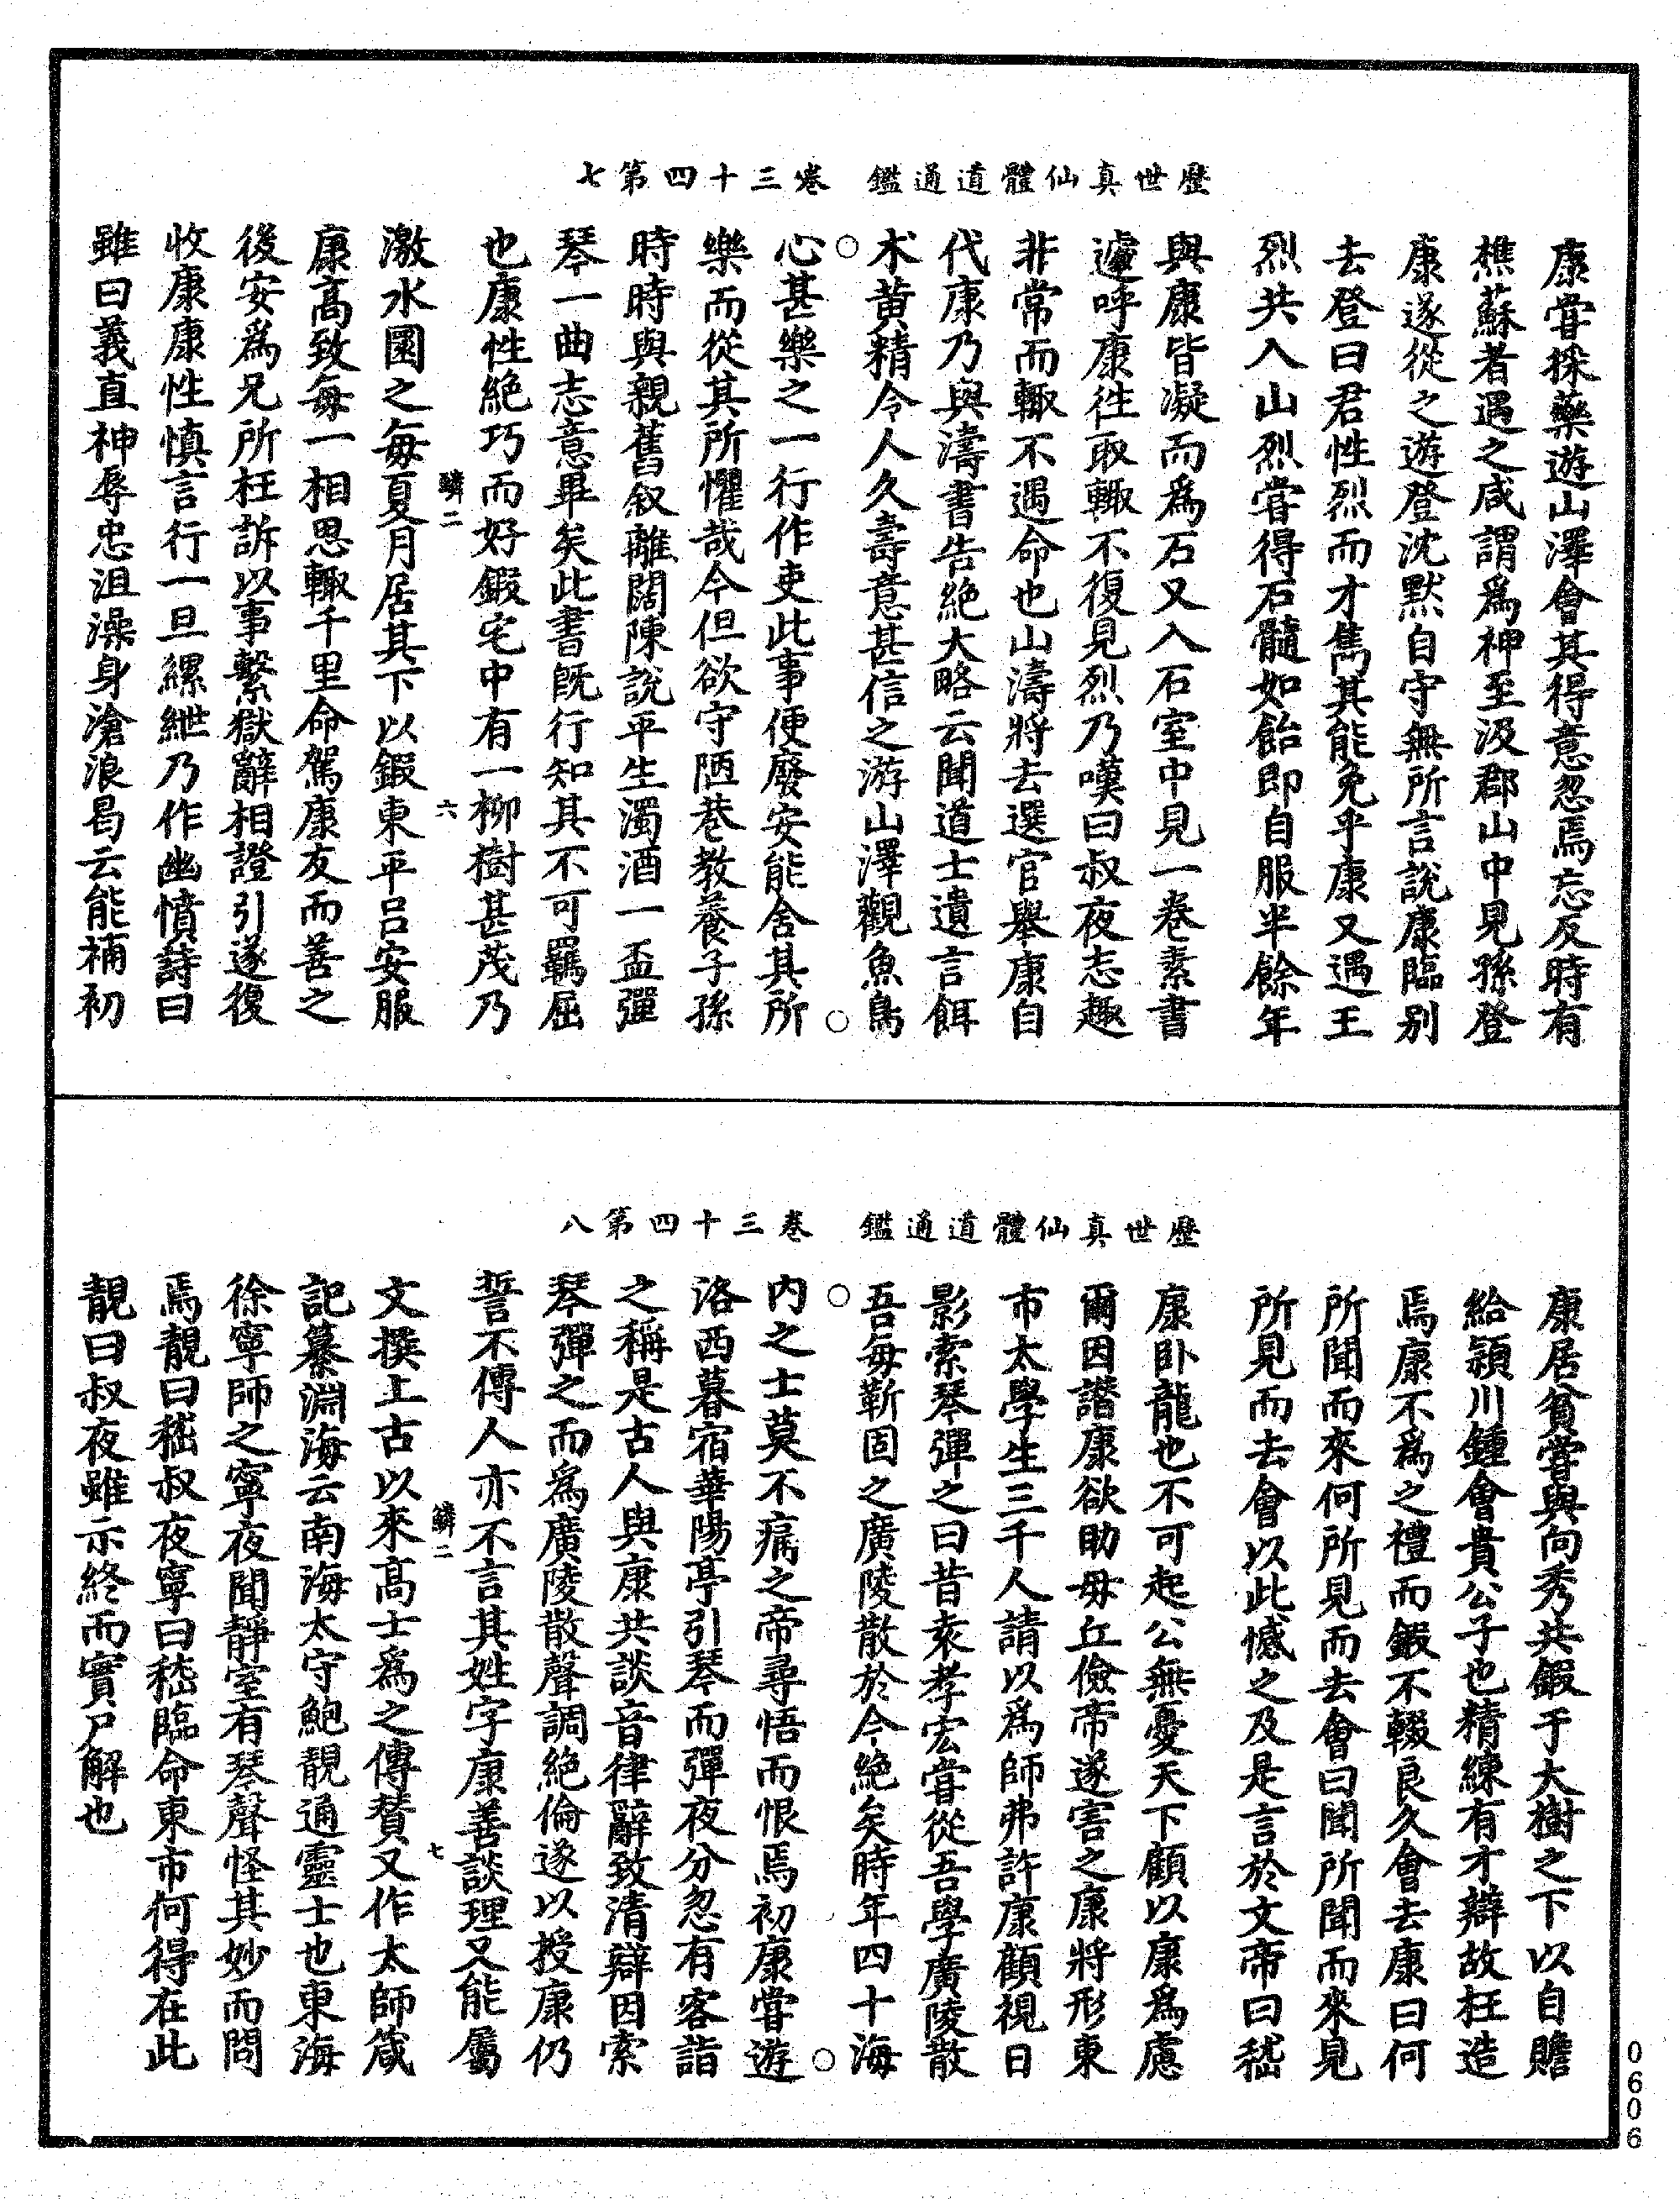 歷世真仙體道通鑑　卷三十四第七
康嘗採藥遊山澤會其得意忽焉忘反時有
樵蘇者遇之咸謂爲神至汲郡山中見孫登
康遂從之遊登沈默自守無所言說康臨別
去登曰君性烈而才雋其能免乎康又遇王
烈共入山烈嘗得石髓如飴即自服半餘年
與康皆凝而爲石又入石室中見一卷素書
遽呼康往取輙不復見烈乃嘆曰叔夜志趣
非常而輙不遇命也山濤將去選官舉康自
代康乃與濤書告絶大略云聞道士遺言餌
术黄精令人久壽意甚信之游山澤觀魚鳥
心甚樂之一行作吏此事便廢安能舍其所
樂而從其所懼哉今但欲守陋巷教養子孫
時時與親舊叙離闊陳說平生濁酒一盃彈
琴一曲志意畢矣此書既行知其不可羈屈
也康性絶巧而好鍜宅中有一柳樹甚茂乃
鳞二　六
激水圜之每夏月居其下以鍜東平吕安服
康高致每一相思輙千里命駕康友而善之
後安爲兄所枉訴以事繫獄辭相證引遂復
收康康性慎言行一旦縲紲乃作幽憤詩曰
雖曰義直神辱忠沮澡身滄浪曷云能補初
歷世真仙體道通鑑　卷三十四第八
康居貧嘗與向秀共鍜于大樹之下以自贍
給潁川鍾會貴公子也精練有才辯故枉造
焉康不爲之禮而鍜不輟良久會去康曰何
所聞而來何所見而去會曰聞所聞而來見
所見而去會以此憾之及是言於文帝曰嵇
康卧龍也不可起公無憂天下顧以康爲慮
爾因譖康欲助毋丘儉帝遂害之康將形東
市太學生三千人請以爲師弗許康顧視日
影索琴彈之曰昔袁孝宏嘗從吾學廣陵散
吾每靳固之廣陵散於今絶矣時年四十海
内之士莫不痛之帝尋悟而恨焉初康嘗遊
洛西暮宿華陽亭引琴而彈夜分忽有客詣
之稱是古人與康共談音律辭致清辯因索
琴彈之而爲廣陵散聲調絶倫遂以授康仍
誓不傳人亦不言其姓字康善談理又能屬
鳞二　七
文撰上古以來高士爲之傳贊又作太師箴
記纂淵海云南海太守鮑靚通靈士也東海
徐寧師之寧夜聞靜室有琴聲怪其妙而問
焉靚曰嵇叔夜寧曰嵇臨命東市何得在此
靚曰叔夜雖示終而實尸解也
0606